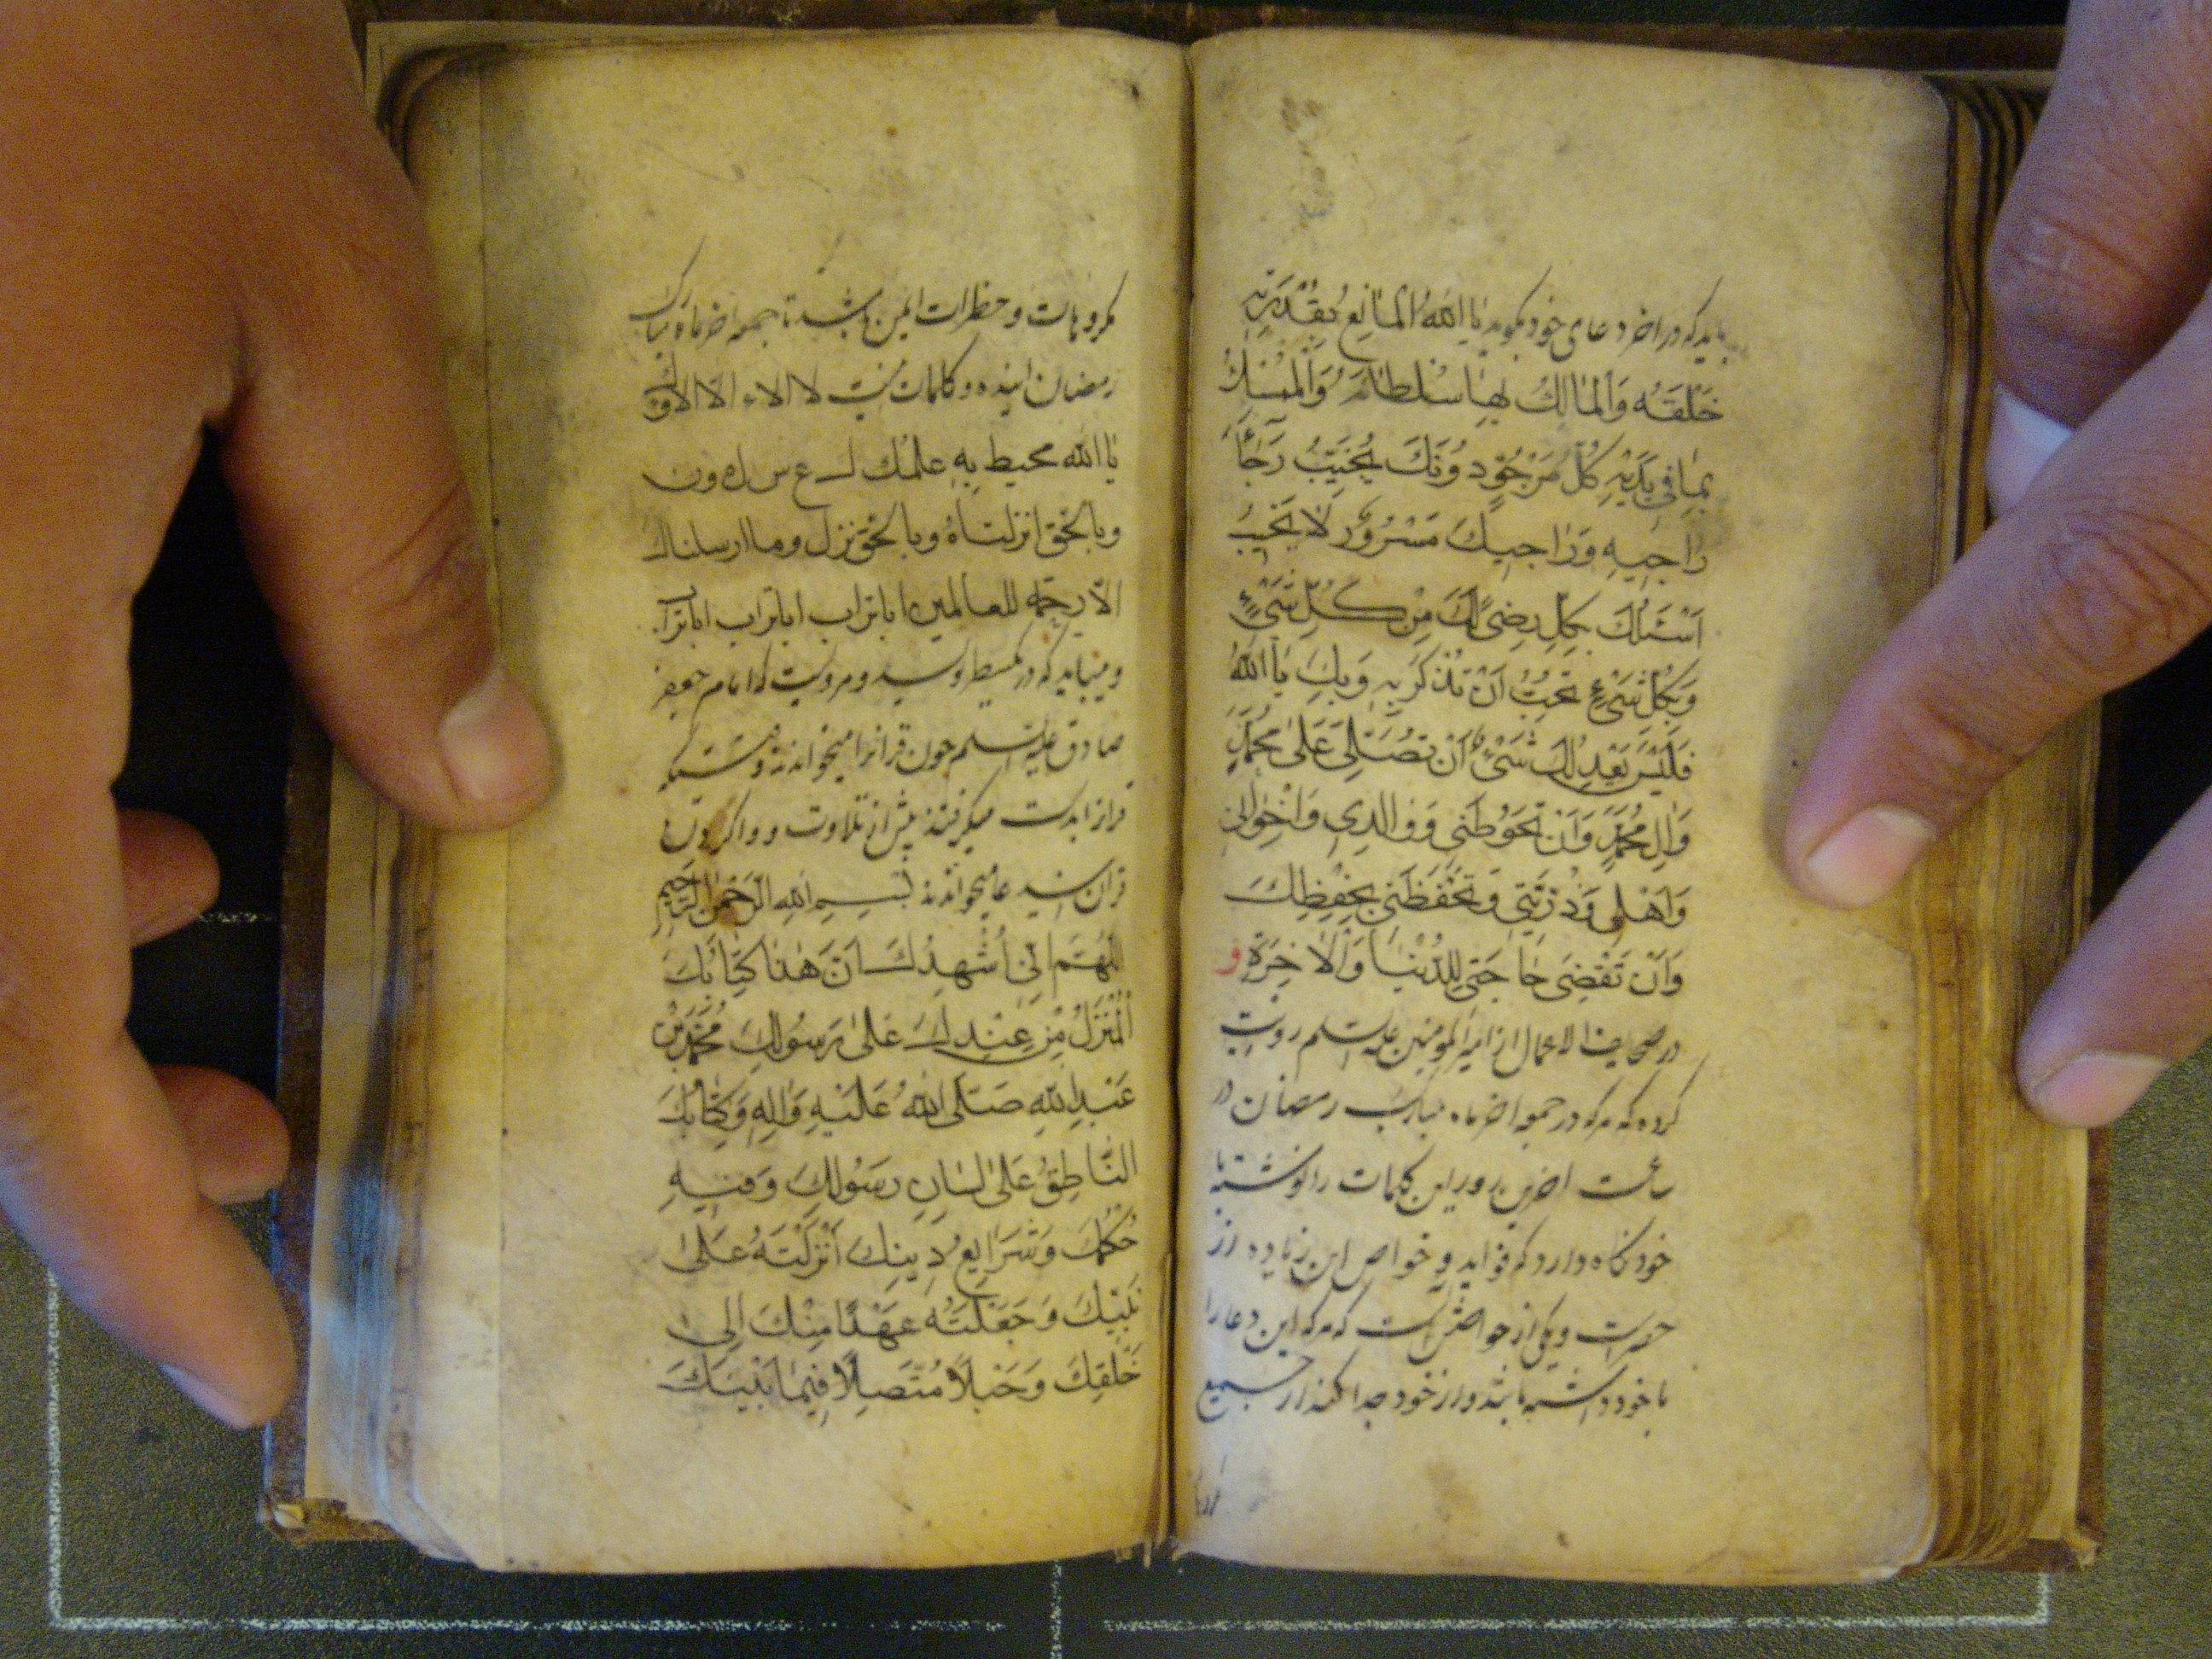 باید که در اخر دعای خود بگوید یَا اَللّٰهُ الْمَانِعُ بِقُدْرَتِهِ
خَلْقَهُ وَالْمَالِكُ بِهَا سُلْطَانَهُ وَالْمُتَسَلِّطُ
بِمَا فِي يَدَيْهِ كُلُّ مَرْجُوٍّ دُونَكَ يُخَيِّبُ رَجَاءَ
رَاجِيهِ وَرَاجِيكَ مَسْرُورٌ لَا يَخِيبُ
اَسْئَلُكَ بِكُلِّ رِضًى لَكَ مِنْ كُلِّ شَيْءٍ
وَبِكُلِّ شَيْءٍ تُحِبُّ اَنْ تُذْكَرَ بِهِ وَبِكَ يَا اَللّٰهُ
فَلَيْسَ يَعْدِلُكَ شَيْءٌ اَنْ تُصَلِّيَ عَلٰى مُحَمَّدٍ
وَاٰلِ مُحَمَّدٍ وَاَنْ تَحُوطَنِي وَوَالِدِي وَاِخْوَانِي
وَاَهْلِي وَذُرِّيَّتِي وَتَحْفَظَنِي بِحِفْظِكَ
وَاَنْ تَقْضِيَ حَاجَتِي لِلدُّنْيَا وَالْاٰخِرَةِ و
در صحایف الاعمال از امیر المومنین علیه السلم روایت
کرده که هرکه در جمعه اخر ماه مبارک رمضان در
ساعت اخرین روز این کلمات را نوشته با
خود نگاه دارد که فواید و خواص این زیاده از
حصرست و یکی از خواصش انست که هرکه این دعا را
با خود داشته باشد و از خود جدا نکند از جمیع
مکروهات و خطرات ایمن باشد تا جمعه اخر ماه مبارک
رمضان اینده و کلمات اینست لا الاء الا الاؤك
یا الله محیط به علمك ل ع س ل ه و ن
وبالحق انزلناه وبالحق نزل وما ارسلناك
الا رحمة للعالمین یا اباتراب اباتراب اباتراب
صادق علیه السلم چون قرانرا میخواندند و قتیکه
قرانرا بدست میگرفتند پیش از تلاوت و واکردن
قران این دعا میخواندند بِسْمِ اللّٰهِ الرَّحْمٰنِ الرَّحِيمِ
اَللّٰهُمَّ اِنِّي اُشْهِدُكَ اَنَّ هٰذَا كِتَابُكَ
الْمُنْزَلُ مِنْ عِنْدِكَ عَلٰى رَسُولِكَ مُحَمَّدِ بْنِ
عَبْدِ اللّٰهِ صَلَّى اللّٰهُ عَلَيْهِ وَاٰلِهِ وَكِتَابُكَ
النَّاطِقُ عَلٰى لِسَانِ رَسُولِكَ وَفِيهِ
حُكْمُكَ وَشَرَايِعُ دِينِكَ اَنْزَلْتَهُ عَلٰى
نَبِيِّكَ وَجَعَلْتَهُ عَهْدًا مِنْكَ اِلٰى
خَلْقِكَ وَحَبْلًا مُتَّصِلًا فِيمَا بَيْنَكَ